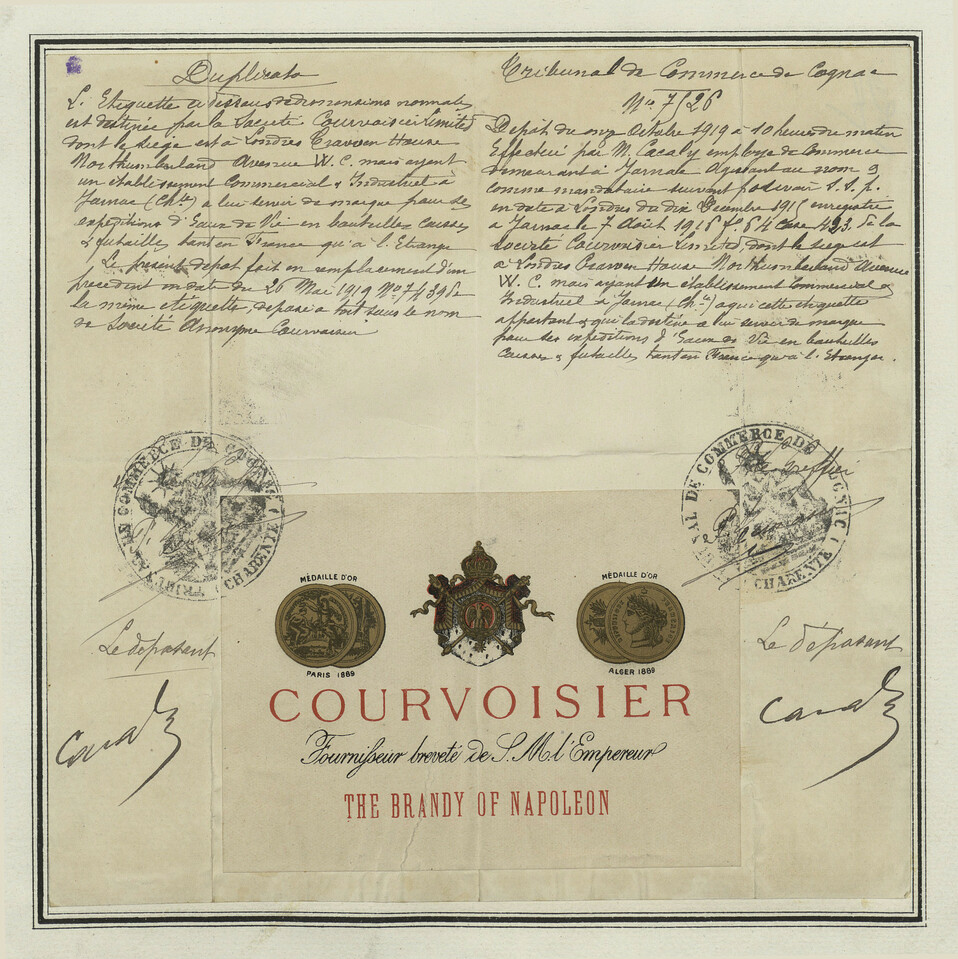 Duplicata
L'Etiquette ci dessous de dimensions normales
est destinée par la Société Courvoisier Limited
dont le siège est à Londres Craven House
Northumberland Avenue W.C. mais ayant
un établissement Commercial & Industriel à
Jarnac (Chte) a leur servir de marque pour ses
expéditions d'Eaux de Vie en bouteilles caisses
& futailles tant en France qu'à l'Etranger
Le présent dépot fait en remplacement d'un
précédent en date du 26 Mai 1919 No
la même etiquette, déposé à tort sous le nom
de Société Anonyme Courvoisier
Tribunal de Commerce de Cognac
No 7/26
Dépôt du onze Octobre 1919 à 10 heures du matin
Effectué par M. Cacaly employé de Commerce
demeurant à Jarnac Agissant au nom &
comme mandataire suivant pouvoir S.S.P.
en date à Londres du dix Décembre enregistré
à Jarnac le 7 Août fo 64 case de la
société Courvoisier Limited, dont le siège est
à Londres Craven House Northumberland Avenue
W.C. mais ayant un établissement Commercial &
Industriel à Jarnac (Chte) a qui cette étiquette
appartient & qui la destine a lui servir de marque
pour ses expéditions d'Eaux de Vie en bouteilles
Caisses & futailles tant en France qu'à l'Etranger.
TRIBUNAL DE COMMERCE DE COGNAC (CHARENTE)
TRIBUNAL DE COMMERCE DE COGNAC (CHARENTE)
Le greffier
Le déposant
Le déposant
MÉDAILLE D'OR
MÉDAILLE D'OR
PARIS 1889
ALGER 1889
COURVOISIER
Fournisseur breveté de S.M. l'Empereur
THE BRANDY OF NAPOLEON